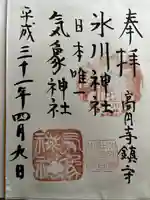 奉拝
高円寺鎮守
氷川神社
日本唯一
気象神社
平成三十一年四月九日